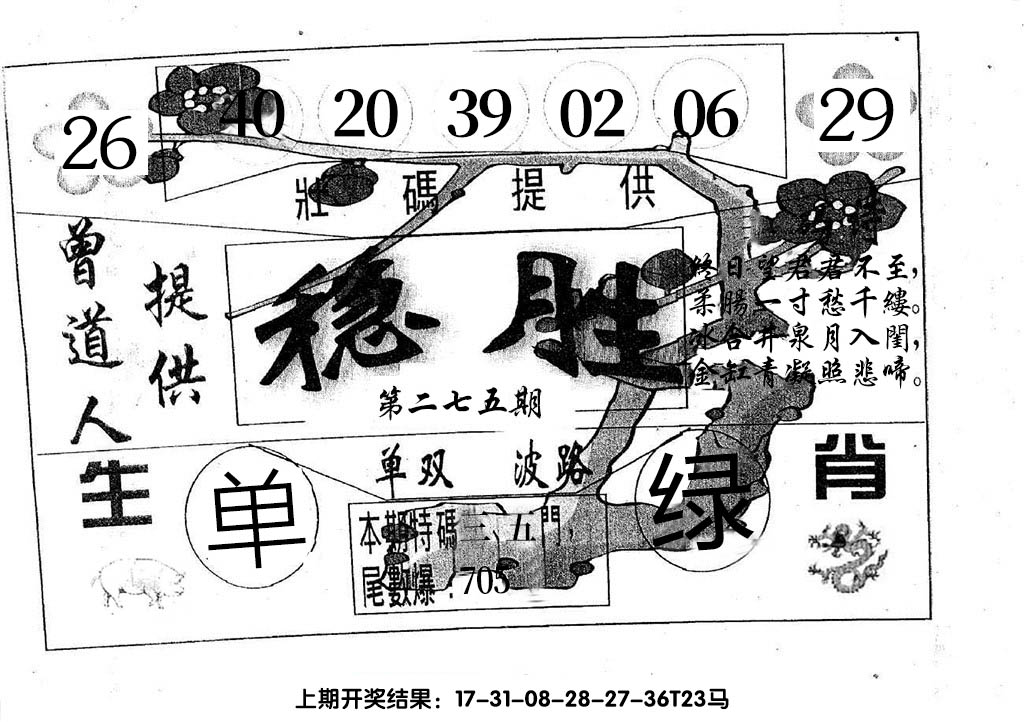 26 40 20 39 02 06 29
壯碼提供
曾道人
提供
稳胜
第二七五期
終日望君君不至，
柔腸一寸愁千縷。
冰合井泉月入閨，
金缸青凝照悲啼。
生肖
单双 波路
单
绿
本期特碼三、五門，
尾數爆：705
上期开奖结果：17-31-08-28-27-36T23马